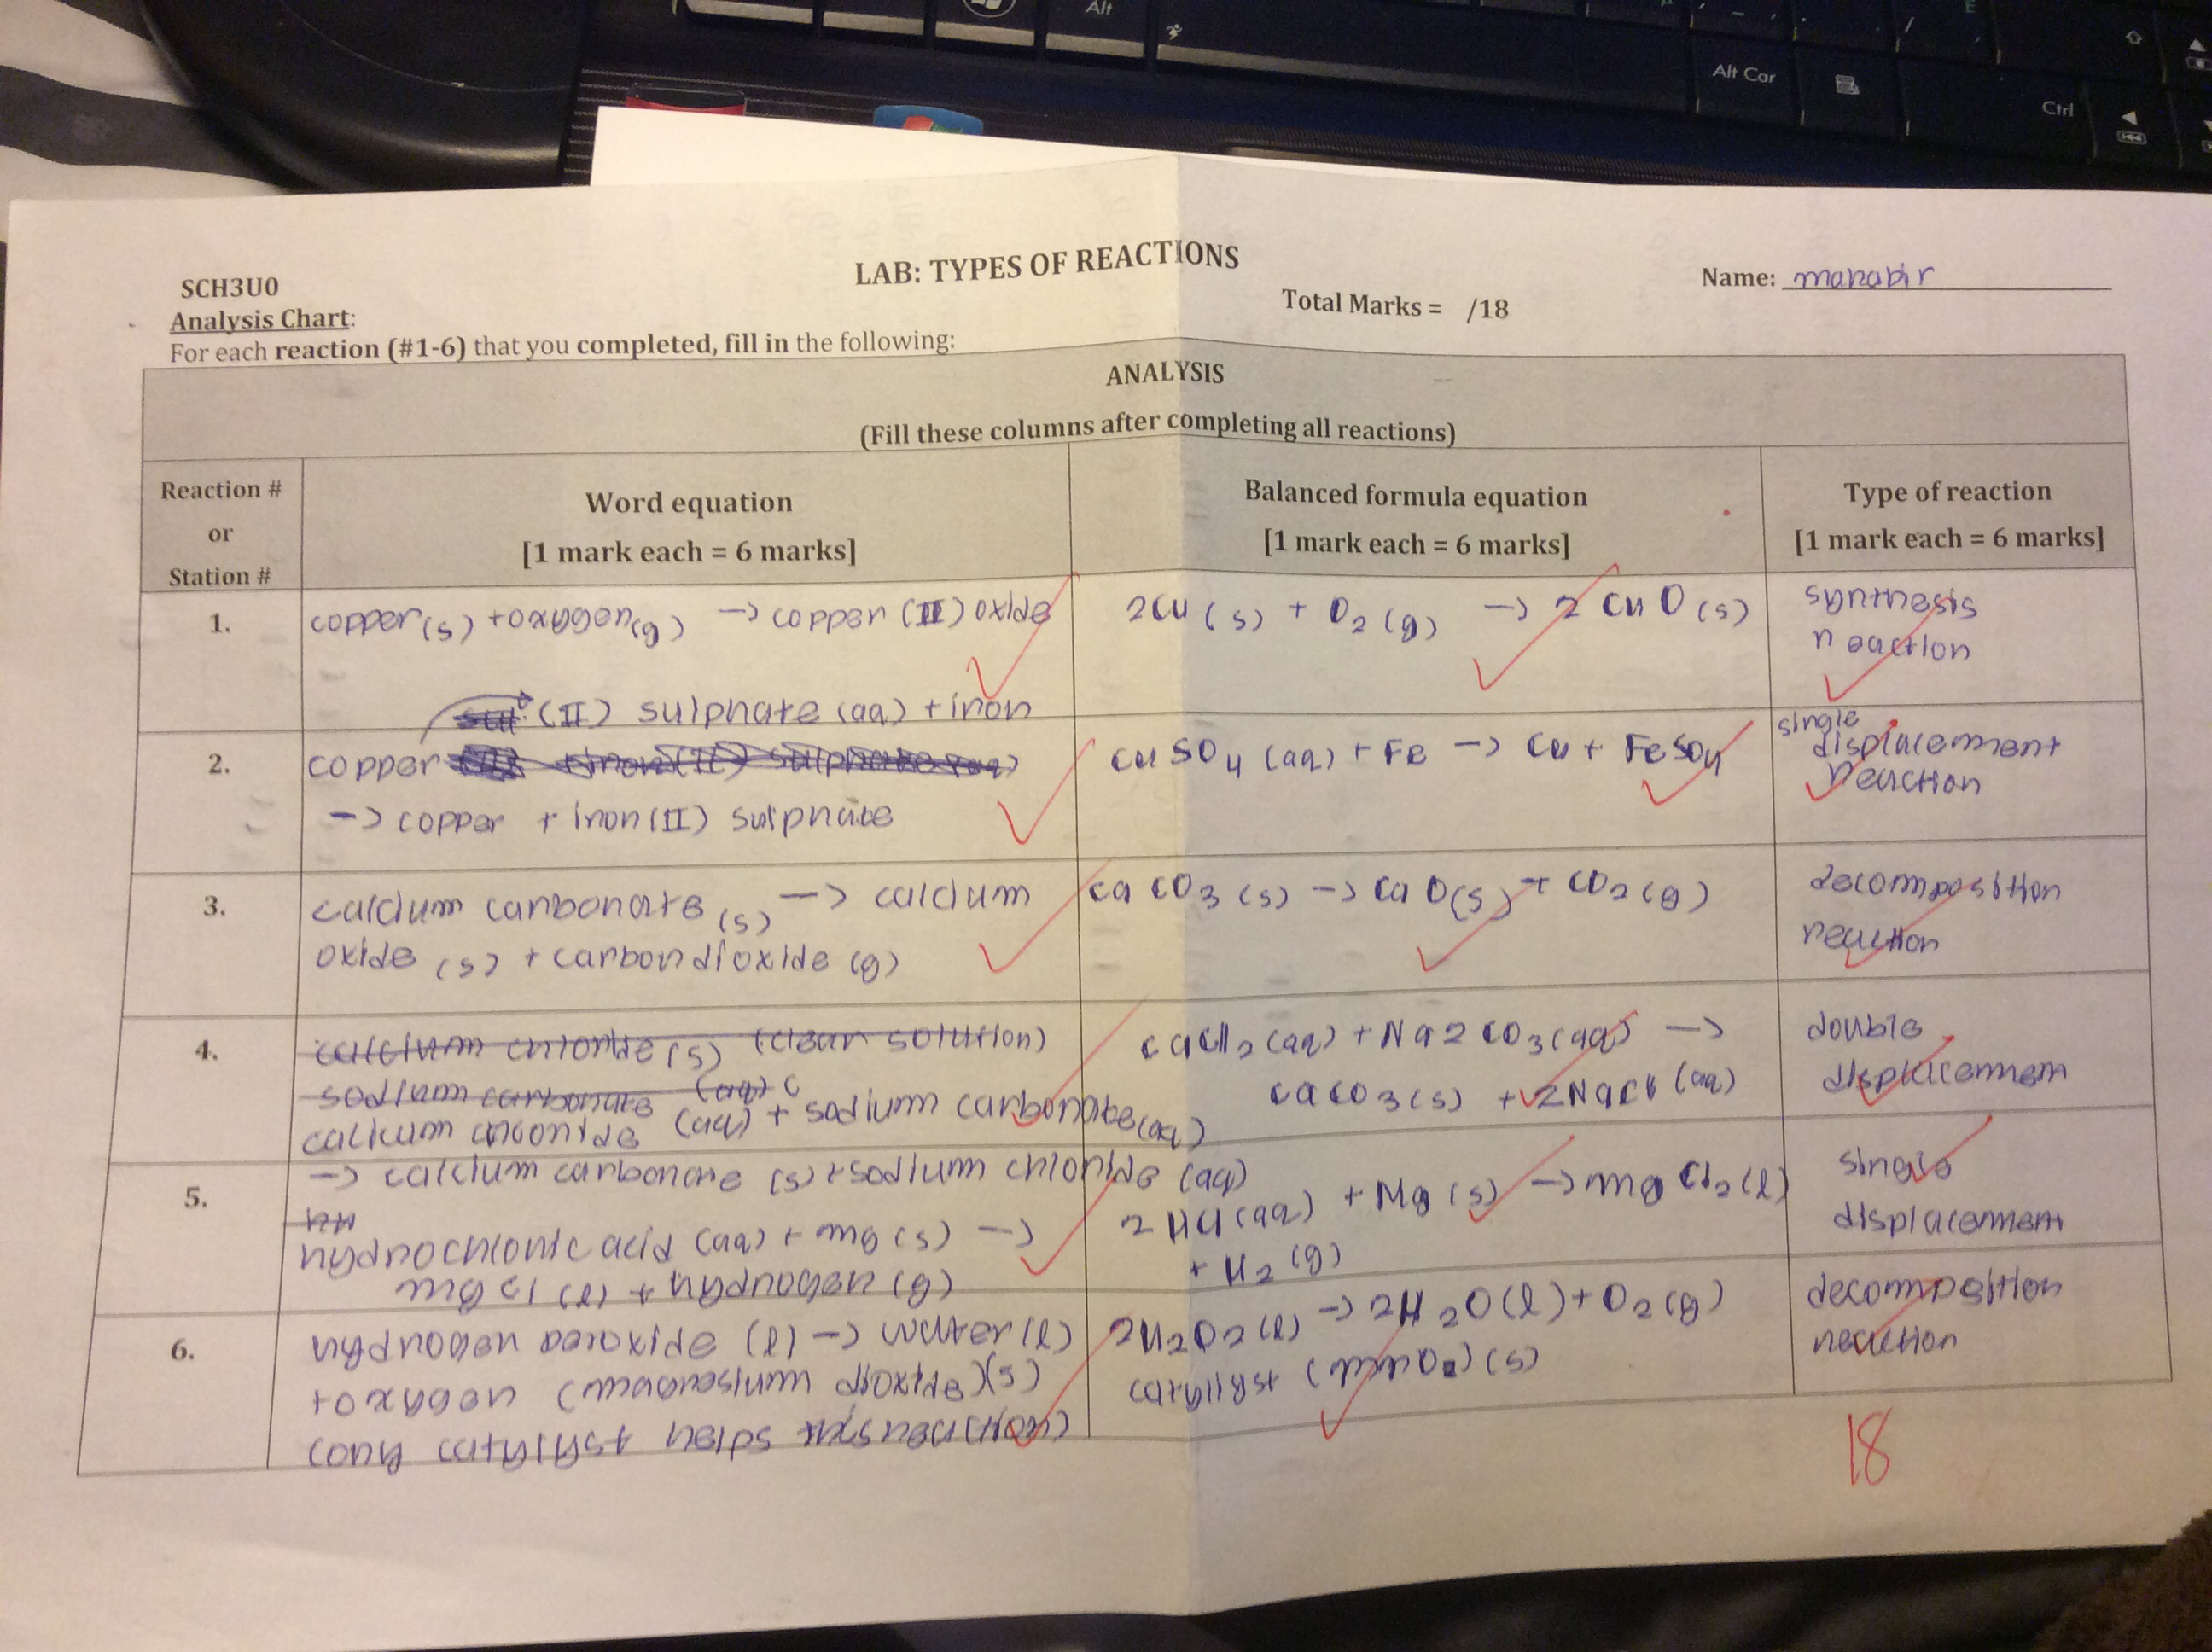 Alt
Alt Car
Ctrl
LAB: TYPES OF REACTIONS
SCH3U0
Name: mahabir
Total Marks = /18
Analysis Chart:
For each reaction (#1-6) that you completed, fill in the following:
ANALYSIS
(Fill these columns after completing all reactions)
Reaction #
or
Station #
Word equation
[1 mark each = 6 marks]
Balanced formula equation
[1 mark each = 6 marks]
Type of reaction
[1 mark each = 6 marks]
1.
copper(s) + oxygen(g) → copper (II) oxide
2Cu (s) + O2 (g) → 2 CuO (s)
synthesis
reaction
2.
(II) sulphate (aq) + iron
copper
→ copper + iron (II) sulphate
CuSO4 (aq) + Fe → Cu + FeSO4
single
displacement
reaction
3.
calcium carbonate (s) → calcium
oxide (s) + carbon dioxide (g)
CaCO3 (s) → CaO(s) + CO2 (g)
decomposition
reaction
4.
calcium chloride (s) (clear solution)
sodium carbonate (aq)
(aq) + sodium carbonate (aq)
→ calcium carbonate (s) + sodium chloride (aq)
CaCl2 (aq) + Na2CO3 (aq) →
CaCO3 (s) + 2NaCl (aq)
double
displacement
5.
hydrochloric acid (aq) + mg (s) →
mg cl (l) + hydrogen (g)
2 HCl (aq) + Mg (s) → mg Cl2 (l)
+ H2 (g)
single
displacement
6.
hydrogen peroxide (l) → water (l)
+ oxygen (magnesium dioxide)(s)
catylyst helps this reaction)
2H2O2 (l) → 2H2O(l) + O2 (g)
catylyst (mnO2) (s)
decomposition
reaction
18